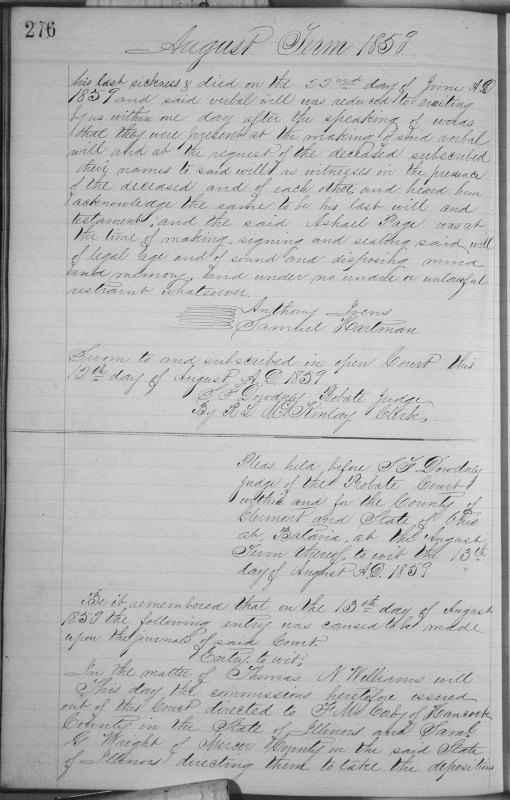 276
August Term 1859
his last sickness & died on the 22nd day of June A.D
1859 and said verbal will was reduced to writing
by us within one day after the speaking of words
that they were present at the making of said verbal
will and at the request of the deceased subscribed
their names to said will as witnesses in the presence
of the deceased and of each other and heard him
acknowledge the same to be his last will and
testament; and the said Ashael Page was at
the time of making, signing and sealing said will
of legal age and of sound and disposing mind
and memory, and under no undue or unlawful
restraint whatsoever.
Anthony Ivens
Samuel Hartman
Sworn to and subscribed in open Court this
12th day of August A.D. 1859
S F Dowdney Probate Judge
By R L McKinlay Clerk
Pleas held before S F Dowdney
Judge of the Probate Court
within and for the County of
Clermont and State of Ohio
at Batavia, at the August
Term thereof, to wit the 13th
day of August A.D. 1859
Be it remembered that on the 13th day of August
1859 the following entry was caused to be made
upon the journals of said Court.
Entry to wit;
In the matter of Thomas N Williams will
This day the commissions heretofore issued
out of this Court directed to of Hancock
County in the State of Illinois and Saml
G Wright of Mercer County in the said State
of Illinois directing them to take the depositions